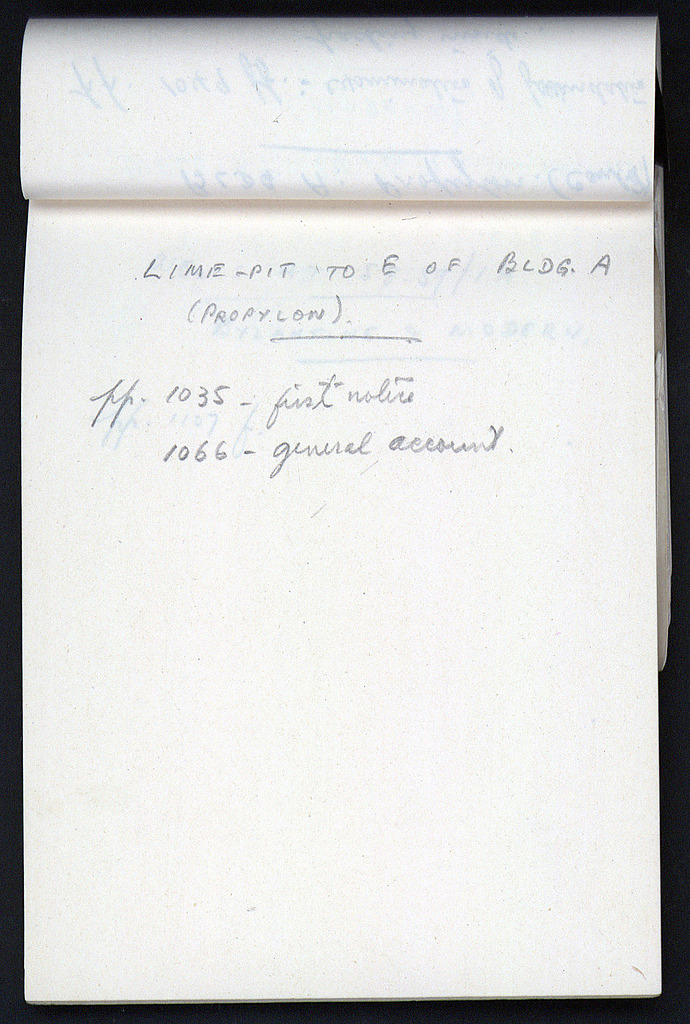 LIME-PIT TO E OF BLDG. A
(PROPYLON).
pp. 1035 - first notice
1066 - general account.